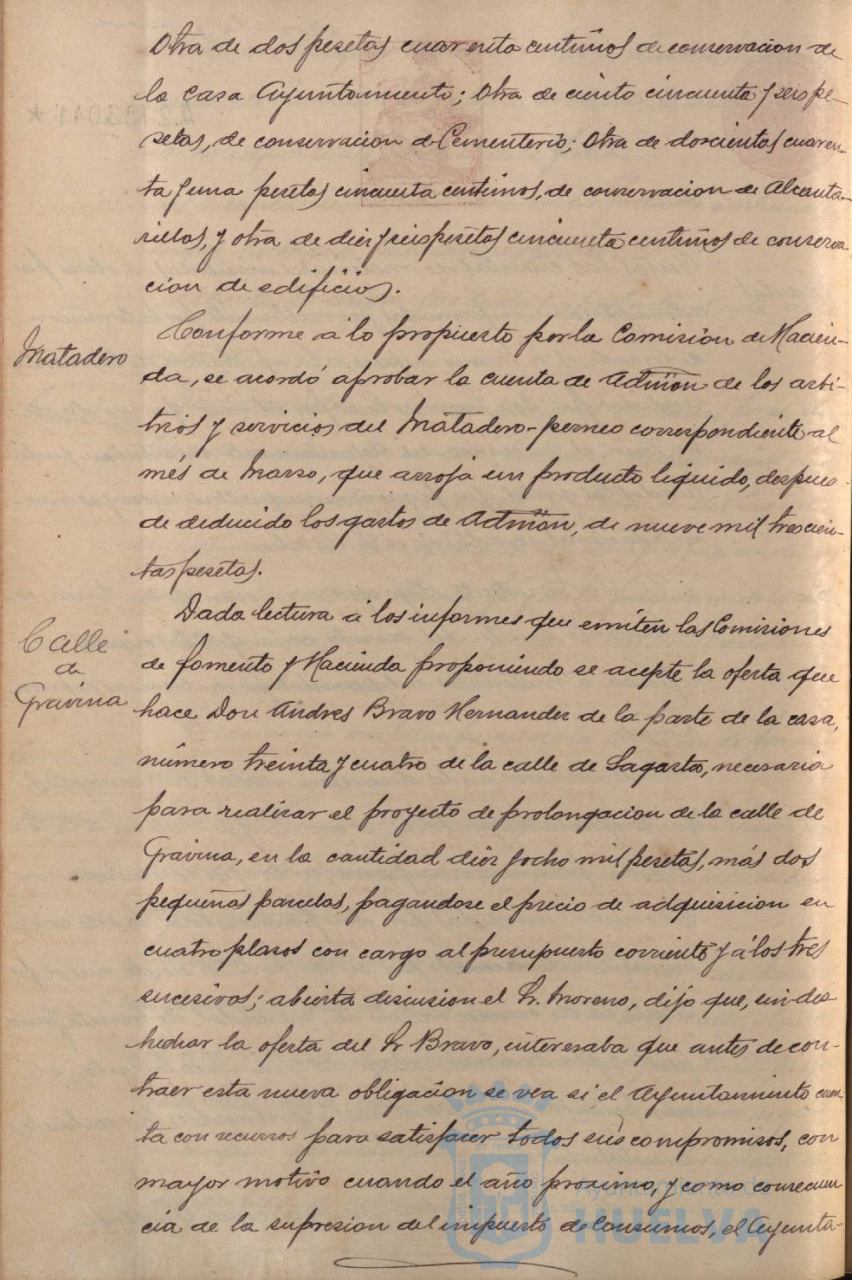 Otra de dos pesetas cuarenta centimos de conservacion de
la casa Ayuntamiento; Otra de ciento cincuenta y seis pe-
setas, de conservacion de Cementerio; Otra de doscientas cuaren-
ta y una pesetas cincuenta centimos, de conservacion de Alcanta-
rillas, y otra de diez y seis pesetas cincuenta centimos de conserva-
cion de edificios.
Matadero
Conforme á lo propuesto por la Comisión de Hacien-
da, se acordó aprobar la cuenta de Admon de los arbi-
trios y servicios del Matadero-perneo correspondiente al
més de Marzo, que arroja un producto liquido, despues
de deducido los gastos de Admon, de nueve mil trescien-
tas pesetas.
Calle
de
Gravina
Dada lectura á los informes que emiten las Comisiones
de fomento y Hacienda proponiendo se acepte la oferta que
hace Don Andres Bravo Hernandez de la parte de la casa,
número treinta y cuatro de la calle de Sagasta, necesaria
para realizar el proyecto de prolongacion de la calle de
Gravina, en la cantidad diez y ocho mil pesetas, más dos
pequeñas parcelas, pagandose el precio de adquisicion en
cuatro plasos con cargo al presupuesto corriente y á los tres
sucesivos; abierta discusion el Sr. Moreno, dijo que, sin des-
hechar la oferta del Sr Bravo, interesaba que antes de con-
traer esta nueva obligacion se vea si el Ayuntamiento cuen-
ta con recursos para satisfacer todos sus compromisos, con
mayor motivo cuando el año proximo, y como consecuen-
cia de la supresion del impuesto de Consumos, el Ayunta-
Ayuntamiento de
HUELVA